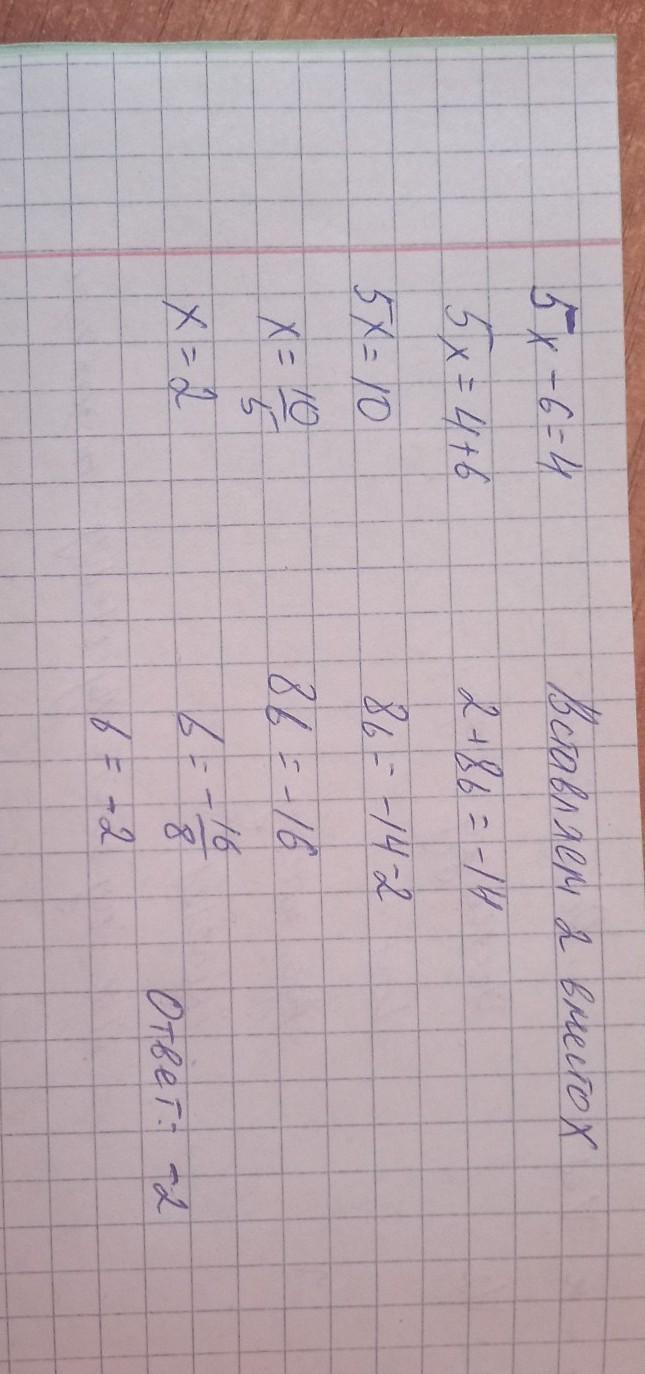 5x - 6 = 4
5x = 4 + 6
5x = 10
x = 10/5
x = 2
Вставляем 2 вместо x
2 + 8b = -14
8b = -14 - 2
8b = -16
b = -16/8
b = -2
Ответ: -2